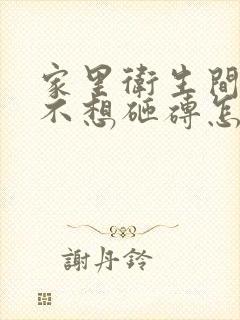 家里衛生間
不想砸磚怎
謝丹鈴